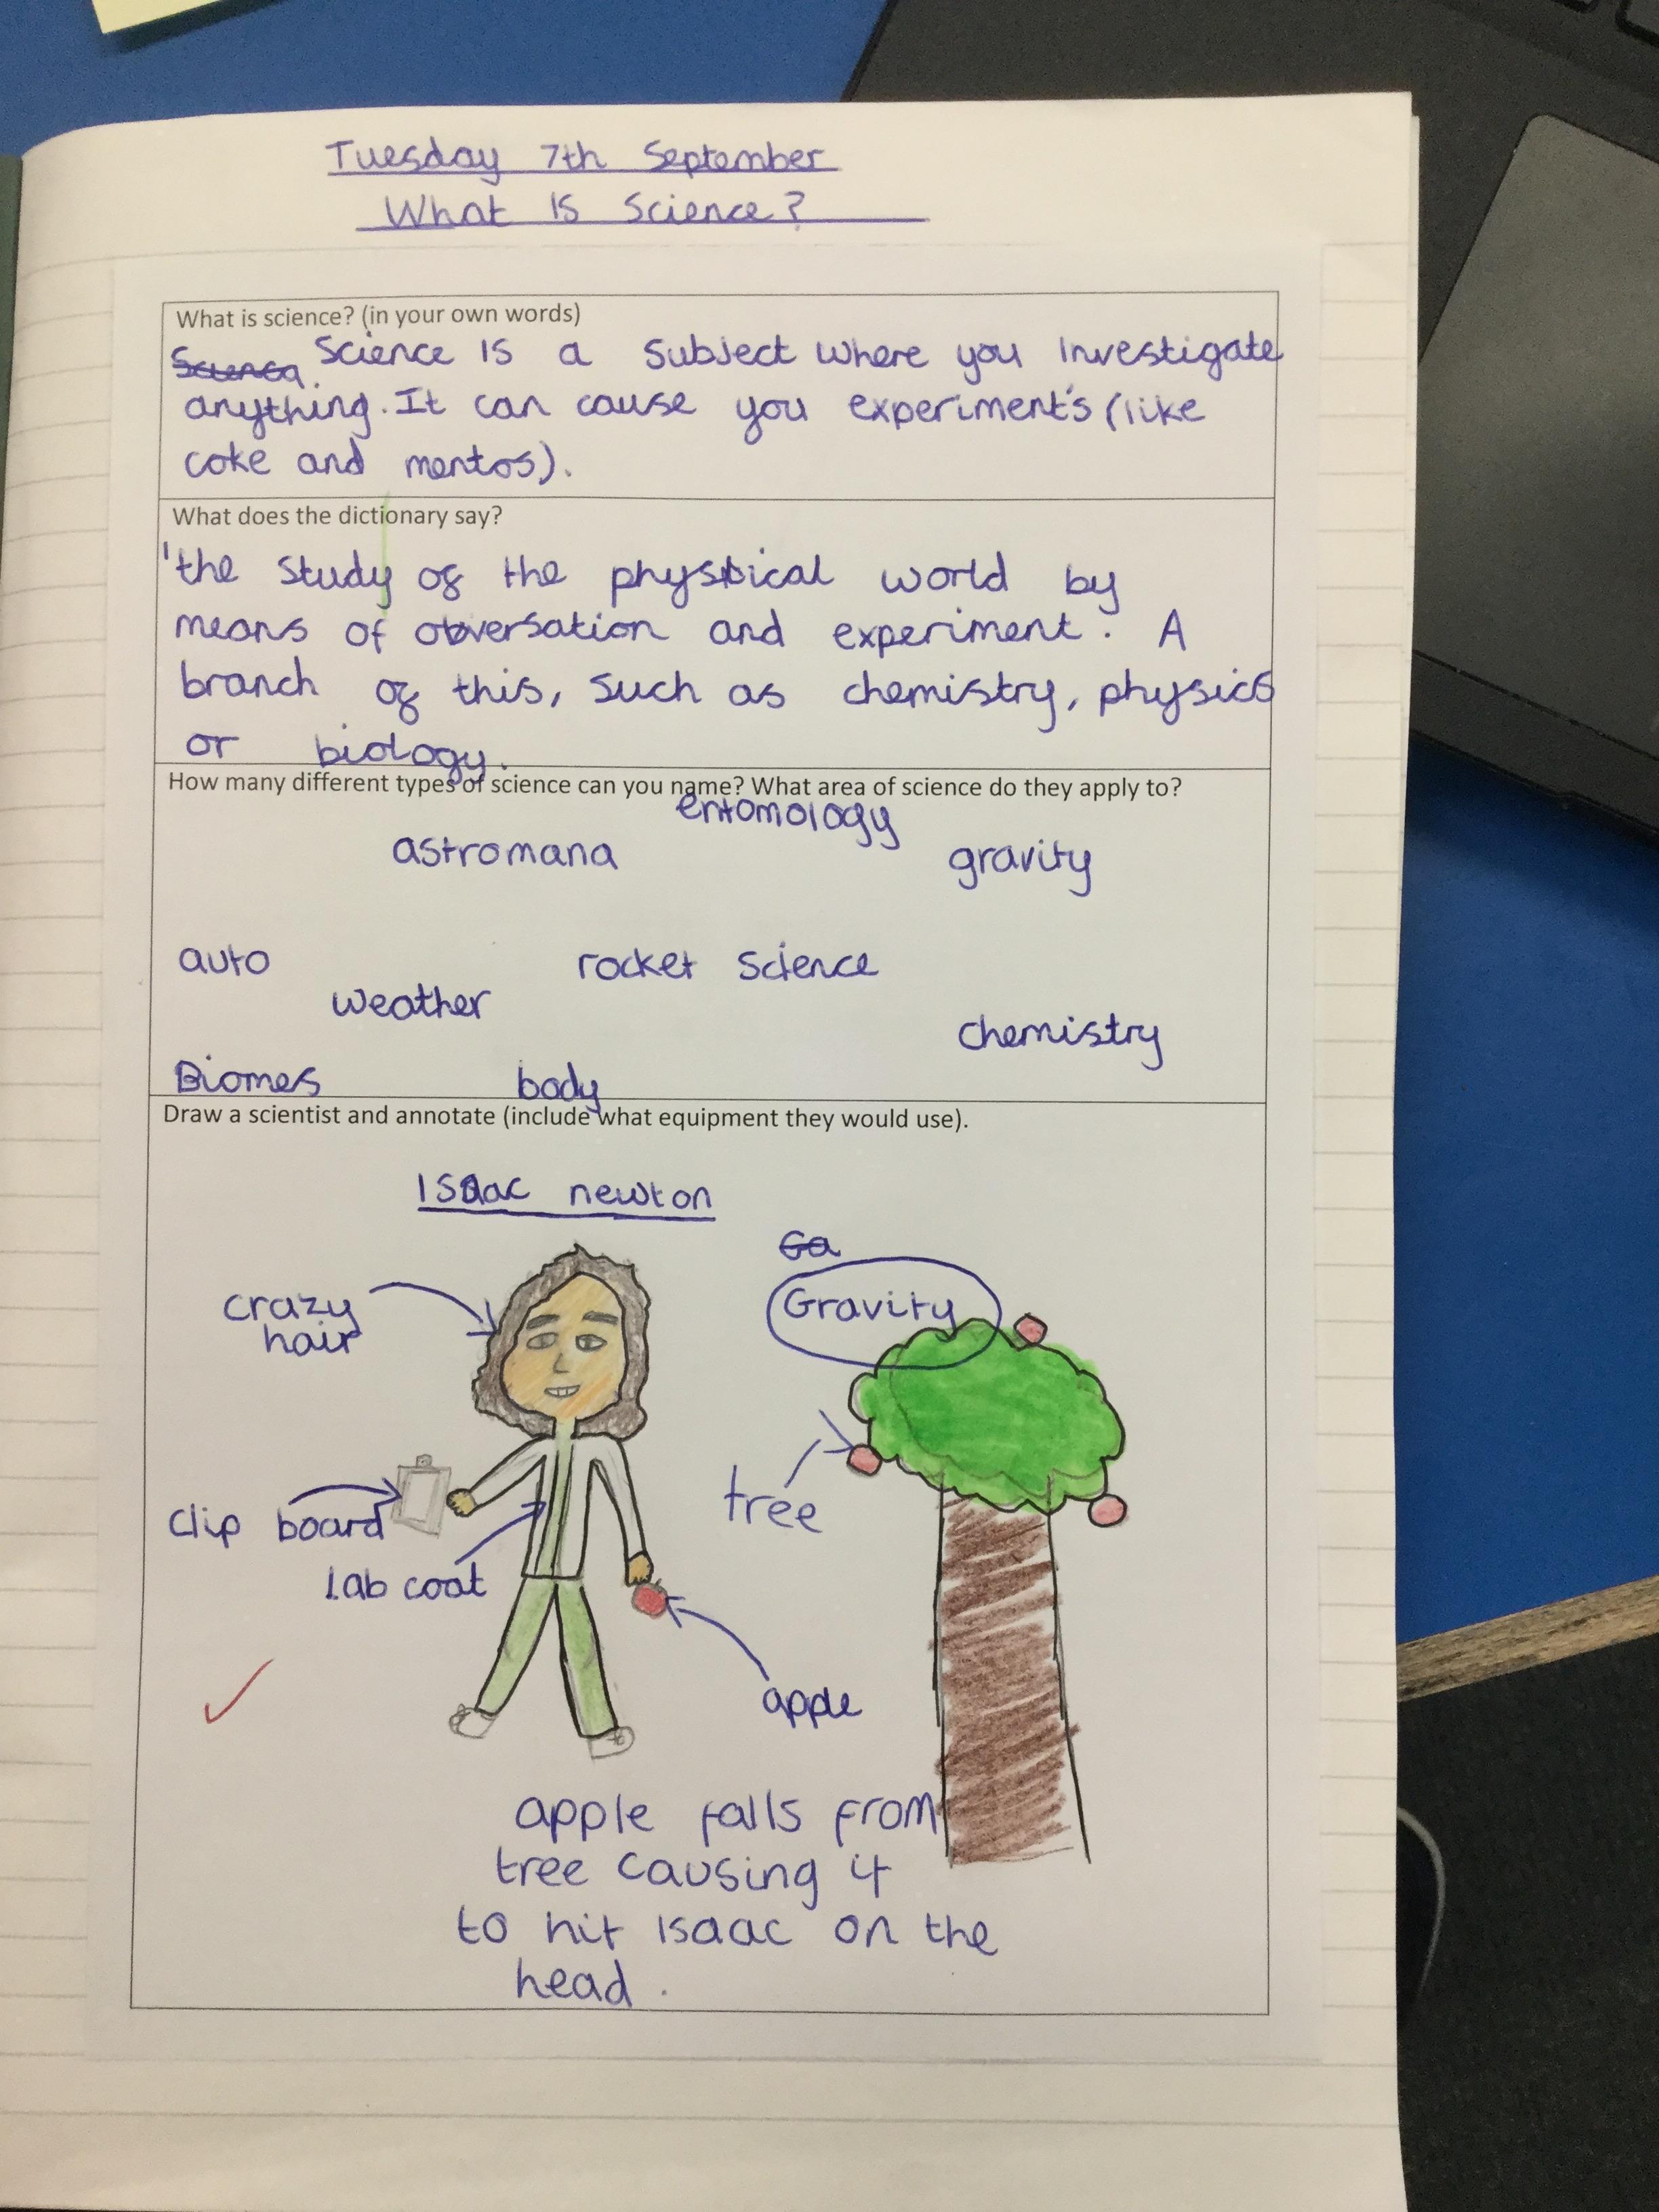 Tuesday 7th September
What is Science?
What is science? (in your own words)
Science is a subject where you investigate
anything. It can cause you experiment's (like
coke and mentos).
What does the dictionary say?
'the study of the physical world by
means of obversation and experiment. A
branch of this, such as chemistry, physics
or biology.
How many different types of science can you name? What area of science do they apply to?
entomology
astromana
gravity
auto
rocket science
weather
chemistry
Biomes
body
Draw a scientist and annotate (include what equipment they would use).
Isaac newton
Ga
Gravity
crazy
hair
tree
clip board
lab coat
apple
apple falls from
tree causing it
to hit isaac on the
head.